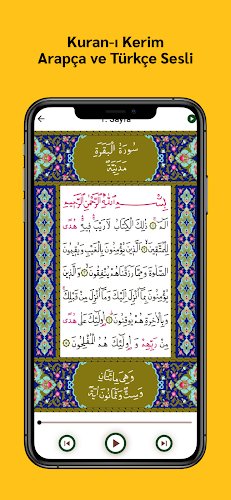 Kuran-ı Kerim
Arapça ve Türkçe Sesli
1. Sayfa
سُورَةُ الْبَقَرَةِ
مَدَنِيَّةٌ
بِسْمِ اللهِ الرَّحْمٰنِ الرَّحِيمِ
الٓمٓ ۞ ذٰلِكَ الْكِتَابُ لَا رَيْبَ فِيهِ هُدًى
لِلْمُتَّقِينَ ۞ اَلَّذِينَ يُؤْمِنُونَ بِالْغَيْبِ وَيُقِيمُونَ
الصَّلٰوةَ وَمِمَّا رَزَقْنَاهُمْ يُنْفِقُونَ ۞ وَالَّذِينَ
يُؤْمِنُونَ بِمَا اُنْزِلَ اِلَيْكَ وَمَا اُنْزِلَ مِنْ قَبْلِكَ
وَبِالْاٰخِرَةِ هُمْ يُوقِنُونَ ۞ اُولٰئِكَ عَلٰى هُدًى
مِنْ رَبِّهِمْ وَاُولٰئِكَ هُمُ الْمُفْلِحُونَ ۞
وَهِيَ مِائَتَانِ
وَسِتٌّ وَثَمَانُونَ اٰيَةً